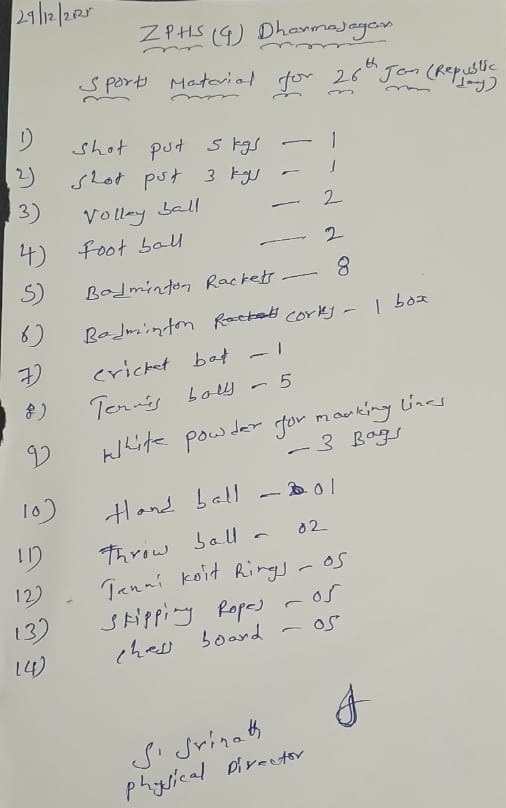 29/12/2025
ZPHS (G) Dharmasagar
Sports Material for 26th Jan (Republic Day)
1) Shot put 5 kgs — 1
2) Shot put 3 kgs — 1
3) Volley ball — 2
4) Foot ball — 2
5) Badminton Rackets — 8
6) Badminton corks – 1 box
7) cricket bat – 1
8) Tennis balls – 5
9) White powder for marking lines
– 3 Bags
10) Hand ball – 01
11) Throw ball – 02
12) Tenni koit Rings – 05
13) Skipping Ropes – 05
14) chess board – 05
S. Srinath
Physical Director